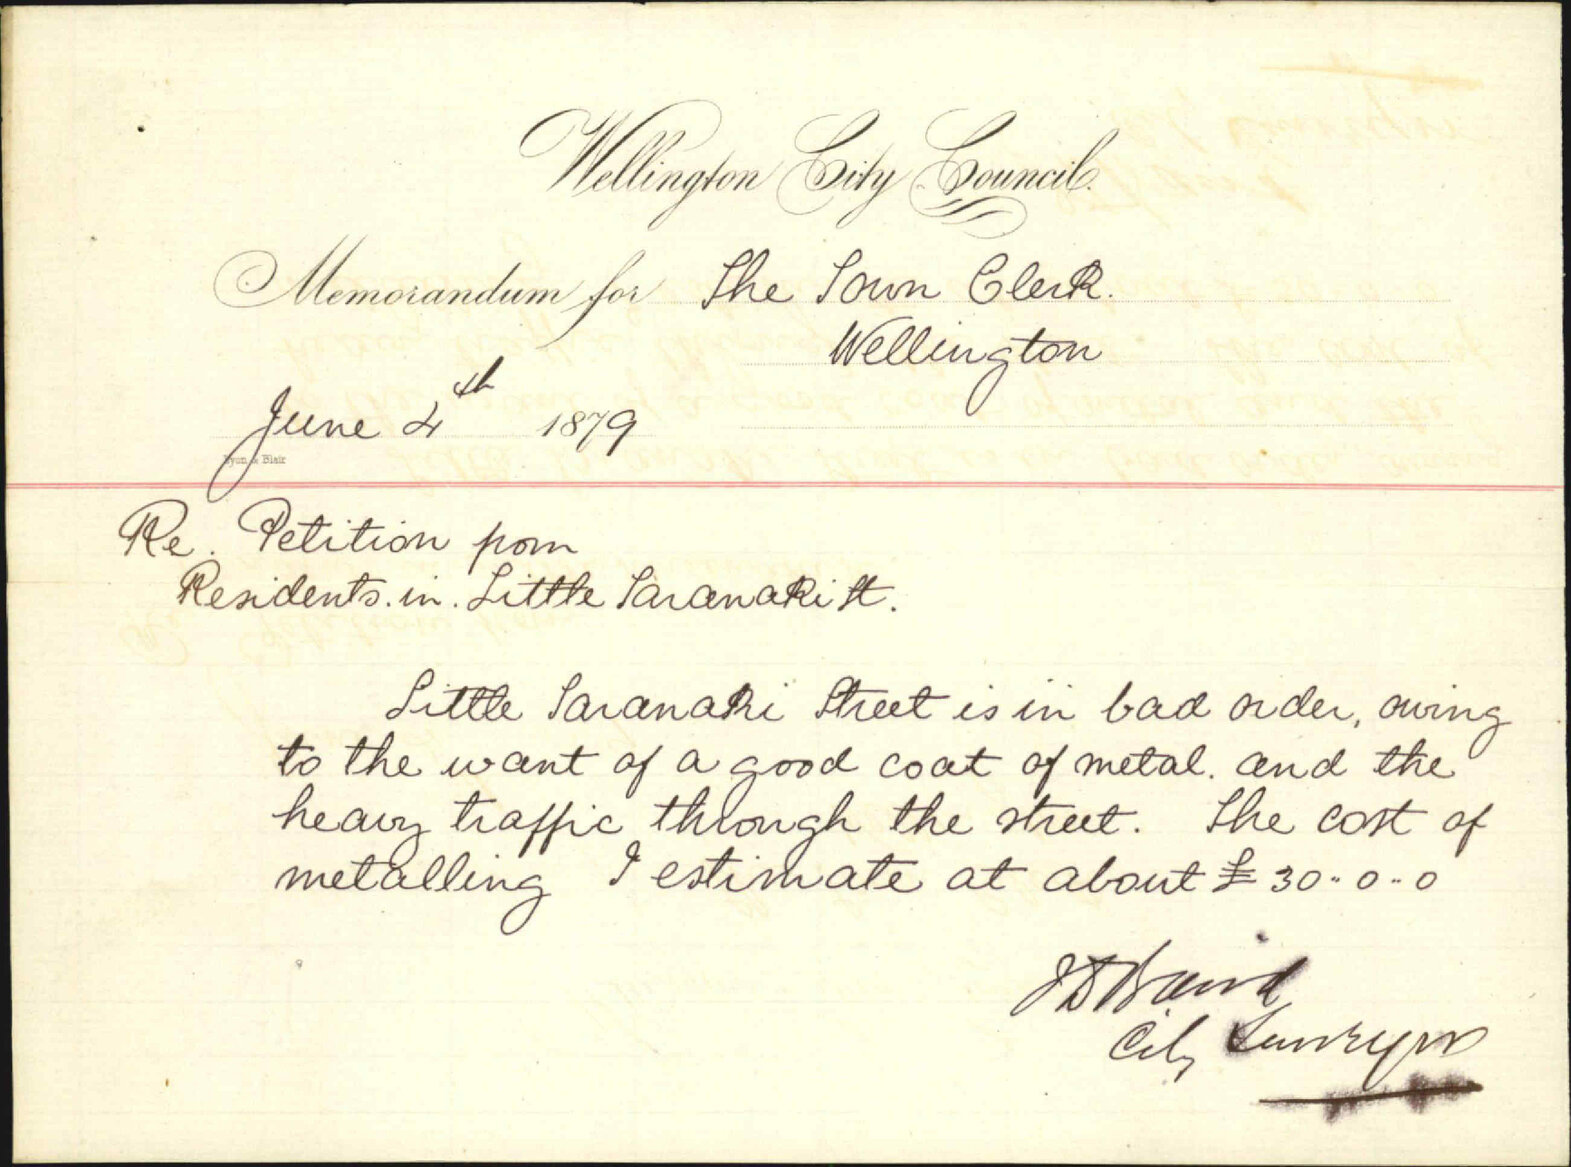 Wellington City Council.
Memorandum for The Town Clerk.
Wellington
June 4th 1879
Lyon & Blair
Re. Petition from
Residents. in. Little Taranaki St.
Little Taranaki Street is in bad order, owing
to the want of a good coat of metal. and the
heavy traffic through the street. The cost of
metalling I estimate at about £30..0..0
J D Baird
City Surveyor